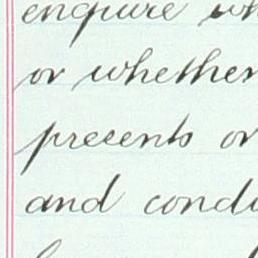 enquire wh
or whether
presents or
and condu